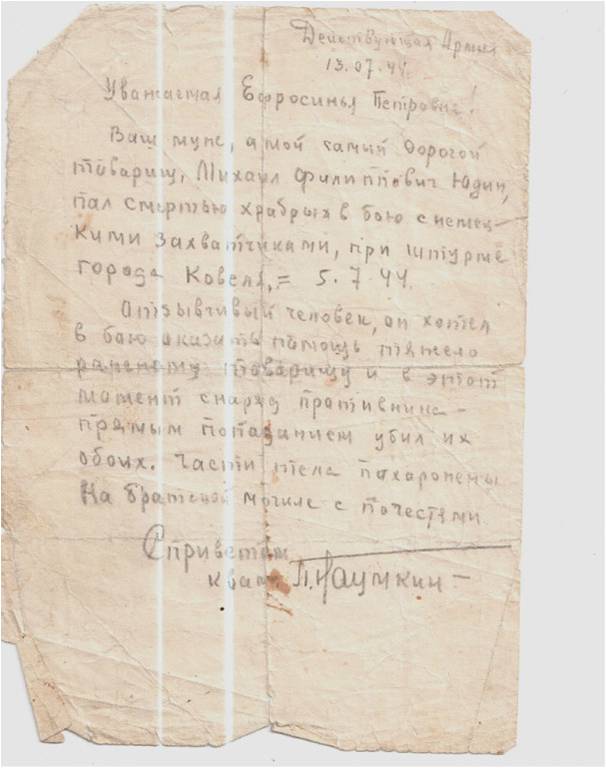 Действующая Армия
13.07.44.
Уважаемая Ефросинья Петровна!
Ваш муж, а мой самый дорогой
товарищ, Михаил Филиппович Юдин,
пал смертью храбрых в бою с немец-
кими захватчиками, при штурме
города Ковеля,= 5.7.44.
Отзывчивый человек, он хотел
в бою оказать помощь тяжело
раненому товарищу и в этот
момент снаряд противника-
прямым попаданием убил их
обоих. Части тела похоронены
на братской могиле с почестями
С приветом
Л. Наумкин-